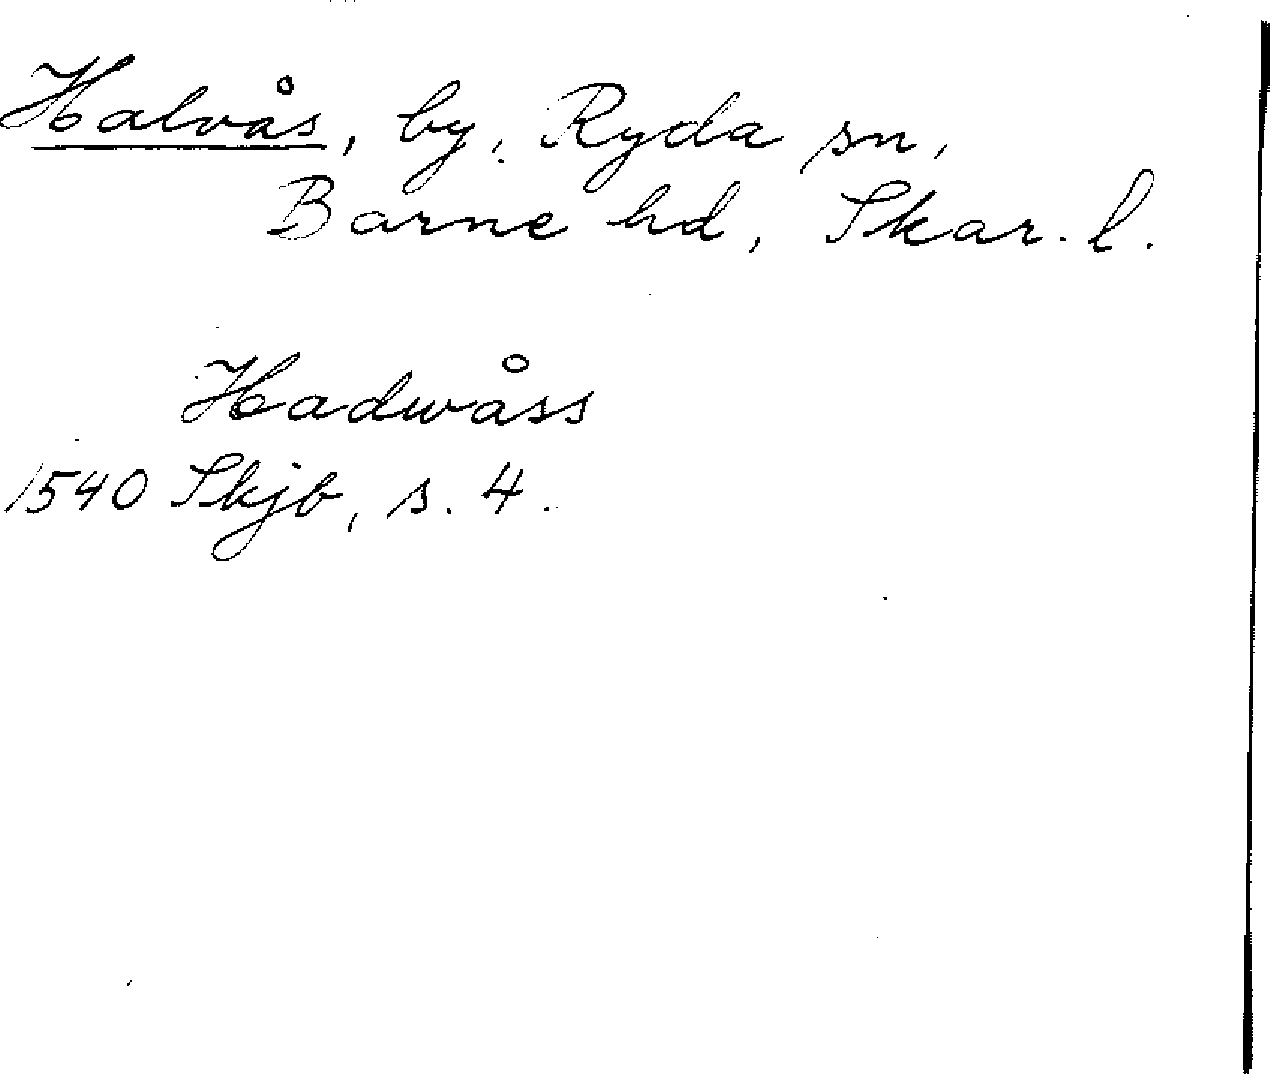 Halvås, by, Ryda sn,
Barne hd, Skar. l.
Hadwåss
1540 Skjb, s. 4.